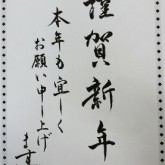 謹賀新年
本年も宜しく
お願い申し上げ
ます